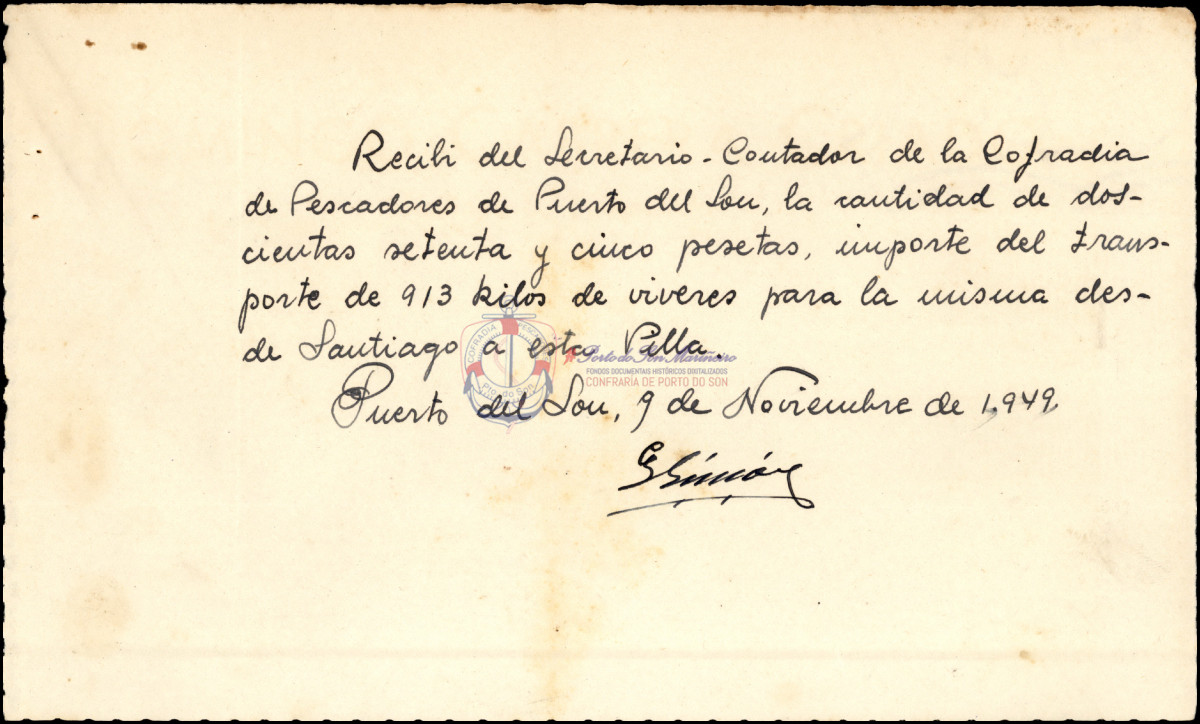 Recibi del Secretario-Contador de la Cofradia
de Pescadores de Puerto del Son, la cantidad de dos-
cientas setenta y cinco pesetas, importe del trans-
porte de 913 kilos de viveres para la misma des-
de Santiago a esta Villa.
COFRADIA PESCADORES
Pto. do Son
Porto do Son Mariñeiro
FONDOS DOCUMENTAIS HISTÓRICOS DIXITALIZADOS
CONFRARÍA DE PORTO DO SON
Puerto del Son, 9 de Noviembre de 1.949.